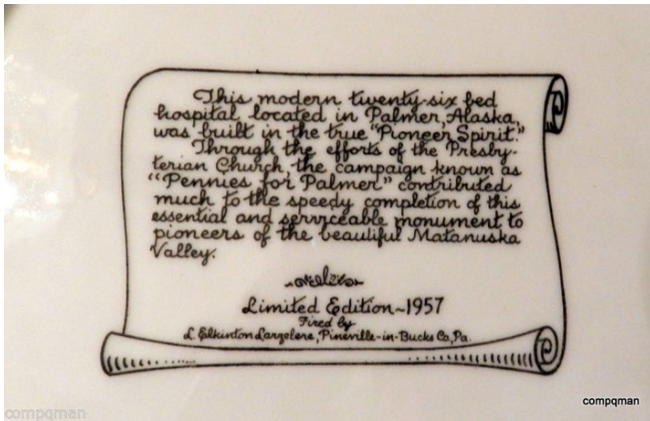 This modern twenty-six bed
hospital located in Palmer, Alaska,
was built in the true "Pioneer Spirit."
Through the efforts of the Presby-
terian Church, the campaign known as
"Pennies for Palmer" contributed
much to the speedy completion of this
essential and serviceable monument to
pioneers of the beautiful Matanuska
Valley.
Limited Edition~1957
Fired by
L. Elkinton Larzelere, Pineville-in-Bucks Co, Pa.
compqman
compqman